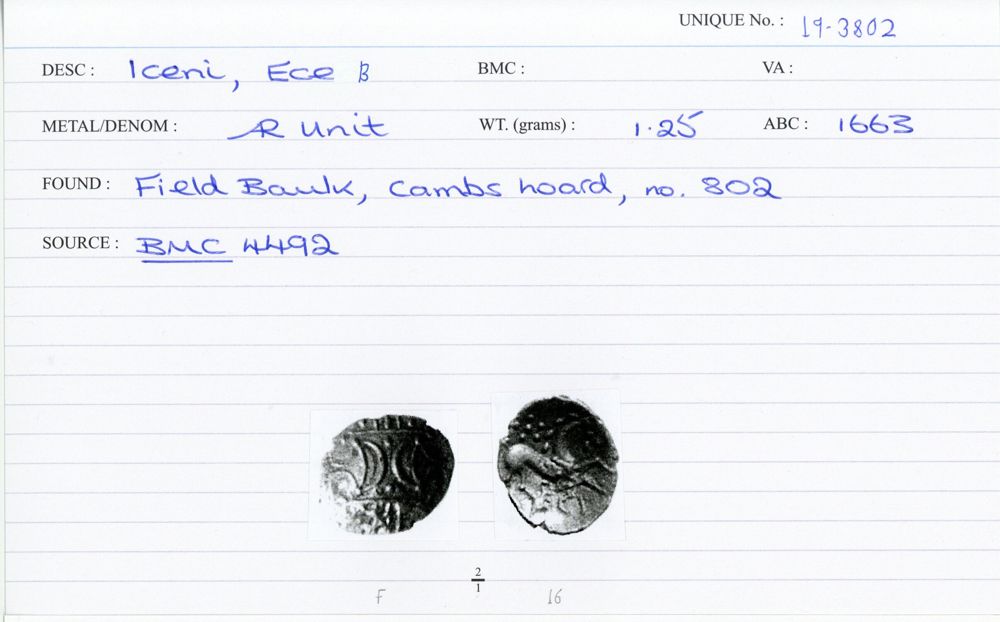 UNIQUE No. : 19-3802
DESC : Iceni, Ece B BMC : VA :
METAL/DENOM : AR Unit WT. (grams) : 1.25 ABC : 1663
FOUND : Field Baulk, Cambs hoard, no. 802
SOURCE : BMC 4492
2
1
F 16